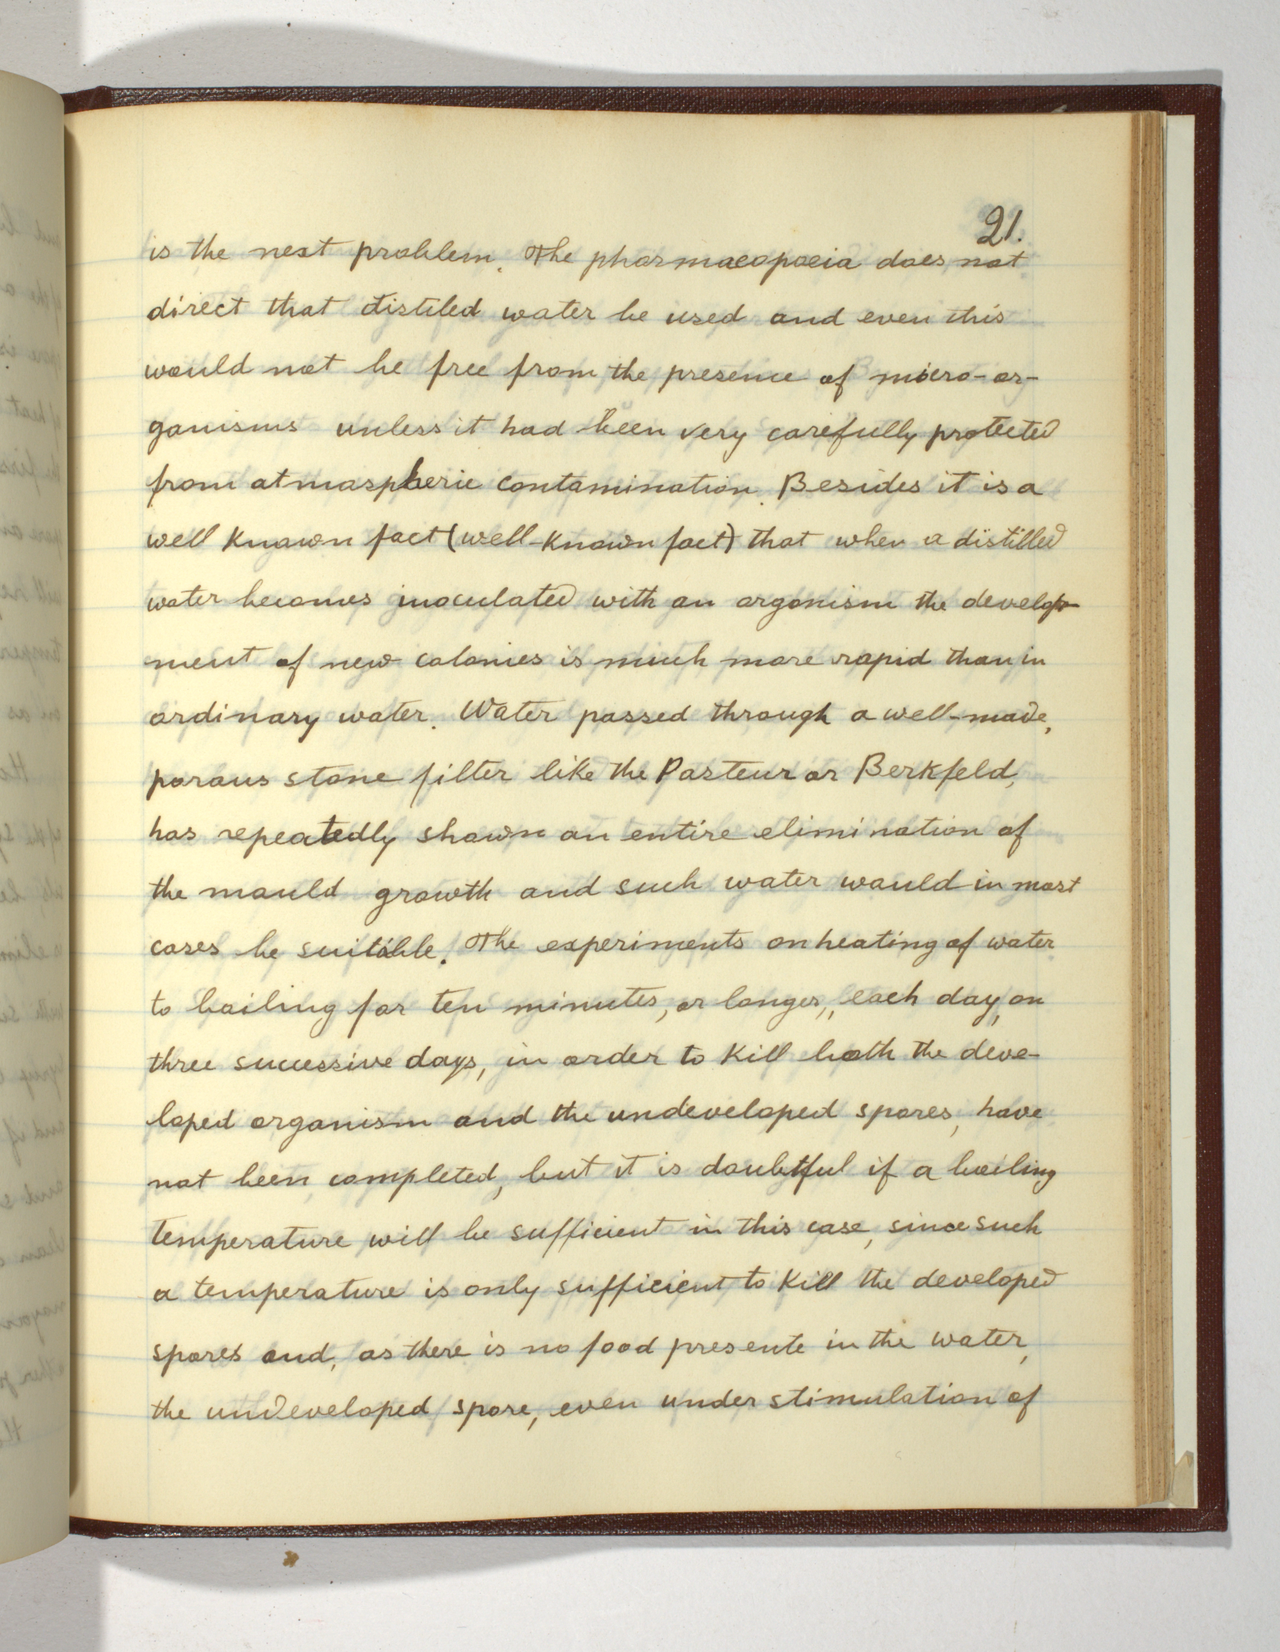 21.
is the next problem. The pharmacopoeia does not
direct that distiled water be used and even this
would not be free from the presence of micro-or-
ganisms unless it had been very carefully protected
from atmospheric contamination. Besides it is a
well known fact (well-known fact) that when a distilled
water becomes inoculated with an organism the develop-
ment of new colonies is much more rapid than in
ordinary water. Water passed through a well-made,
porous stone filter like the Pasteur or Berkfeld,
has repeatedly shown an entire elimination of
the mould growth and such water would in most
cases be suitable. The experiments on heating of water
to boiling for ten minutes, or longer, each day, on
three successive days, in order to kill both the deve-
loped organism and the undeveloped spores, have
not been completed, but it is doubtful if a boiling
temperature will be sufficient in this case, since such
a temperature is only sufficient to kill the developed
spores and, as there is no food presente in the water,
the undeveloped spore, even under stimulation of